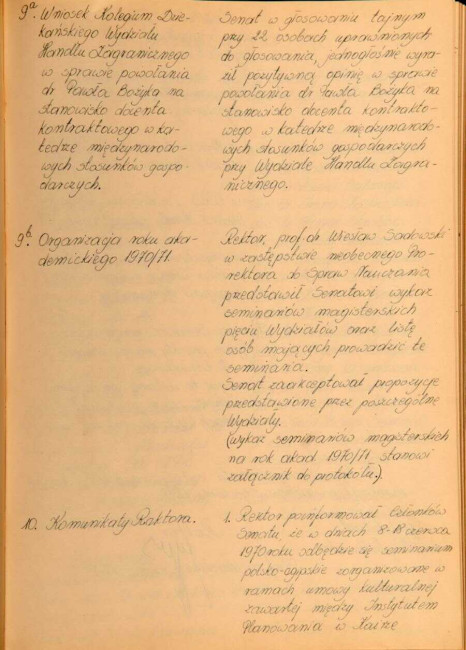 9a. Wniosek Kolegium Dzie-
kańskiego Wydziału
Handlu Zagranicznego
w sprawie powołania
dr Pawła Bożyka na
stanowisko docenta
kontraktowego w ka-
tedrze międzynarodo-
wych stosunków gospo-
darczych.
Senat w głosowaniu tajnym
przy 22 osobach uprawnionych
do głosowania, jednogłośnie wyra-
ził pozytywną opinię w sprawie
powołania dr Pawła Bożyka na
stanowisko docenta kontrakto-
wego w katedrze międzynarodo-
wych stosunków gospodarczych
przy Wydziale Handlu Zagra-
nicznego.
9b. Organizacja roku aka-
demickiego 1970/71.
Rektor, prof. dr Wiesław Sadowski
w zastępstwie nieobecnego Pro-
rektora do Spraw Nauczania
przedstawił Senatowi wykaz
seminariów magisterskich
pięciu Wydziałów oraz listę
osób mających prowadzić te
seminaria.
Senat zaakceptował propozycje
przedstawione przez poszczególne
Wydziały.
(wykaz seminariów magisterskich
na rok akad. 1970/71 stanowi
załącznik do protokołu.)
10. Komunikaty Rektora.
1. Rektor poinformował członków
Senatu, że w dniach 8-18 czerwca
1970 roku odbędzie się seminarium
polsko-egipskie zorganizowane w
ramach umowy kulturalnej
zawartej między Instytutem
Planowania w Kairze